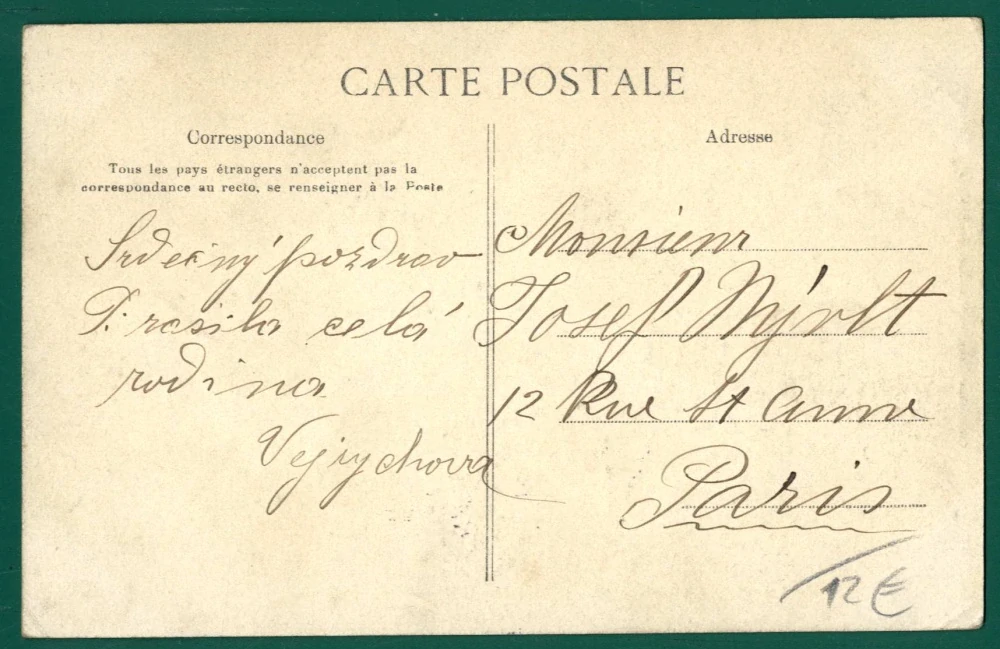 CARTE POSTALE
Correspondance
Tous les pays étrangers n'acceptent pas la
correspondance au recto, se renseigner à la Poste
Srdečný pozdrav
celá
rodina
Vejrychova
Adresse
Monsieur
Josef Nývlt
12 Rue St Anne
Paris
12 €